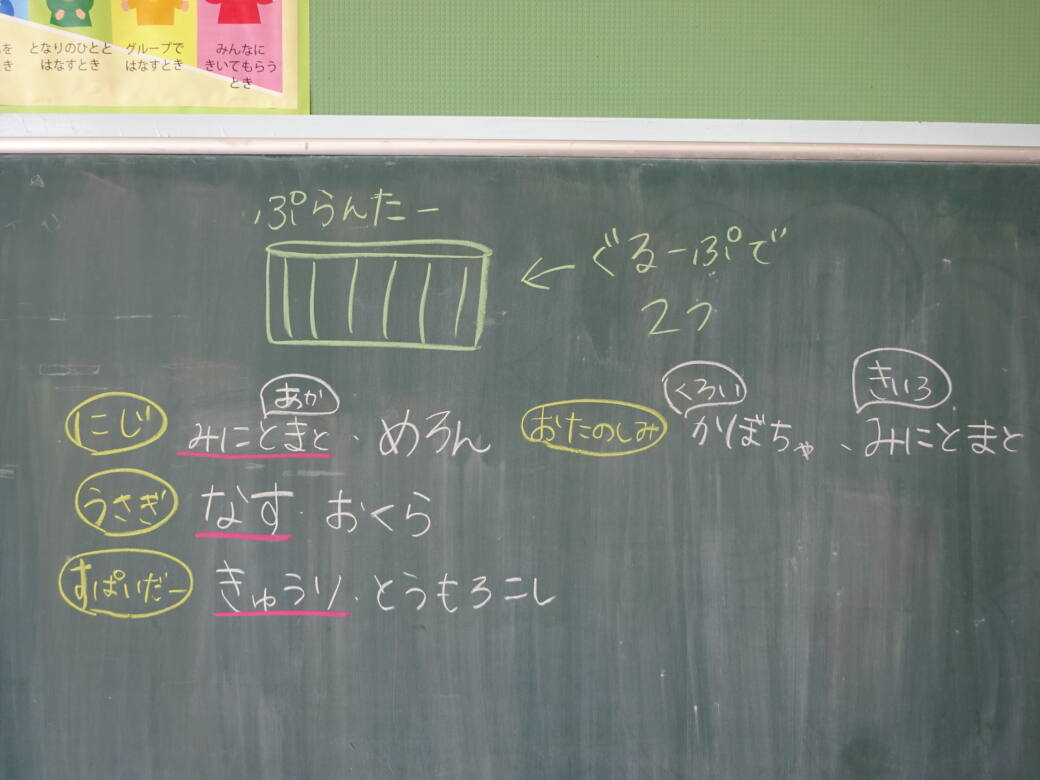 となりのひとと
はなすとき
グループで
はなすとき
みんなに
きいてもらう
とき
ぷらんたー
ぐるーぷで
2つ
にじ
あか
みにとまと、めろん
うさぎ
なす・おくら
すぱいだー
きゅうり・とうもろこし
おたのしみ
くろい
きいろ
かぼちゃ、みにとまと